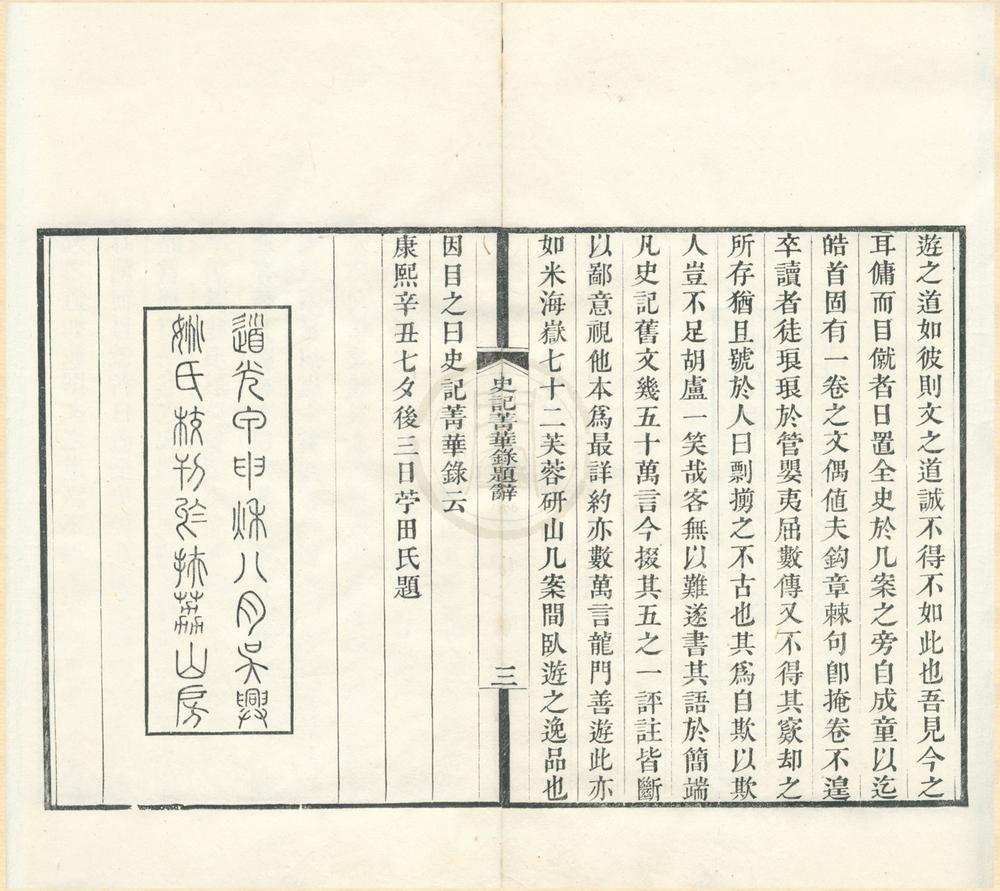 遊之道如彼則文之道誠不得不如此也吾見今之
耳傭而目僦者日置全史於几案之旁自成童以迄
皓首固有一卷之文偶値夫鈎章棘句卽掩卷不遑
卒讀者徒琅琅於管嬰夷屈數傳又不得其窾却之
所存猶且號於人曰剽擄之不古也其爲自欺以欺
人豈不足胡盧一笑哉客無以難遂書其語於簡端
凡史記舊文幾五十萬言今掇其五之一評註皆斷
以鄙意視他本爲最詳約亦數萬言龍門善遊此亦
如米海嶽七十二芙蓉硏山几案間臥遊之逸品也
史記菁華錄題辭
三
因目之曰史記菁華錄云
康熙辛丑七夕後三日苧田氏題
道光甲申秌八月吳興
姚氏校刊於扶荔山房